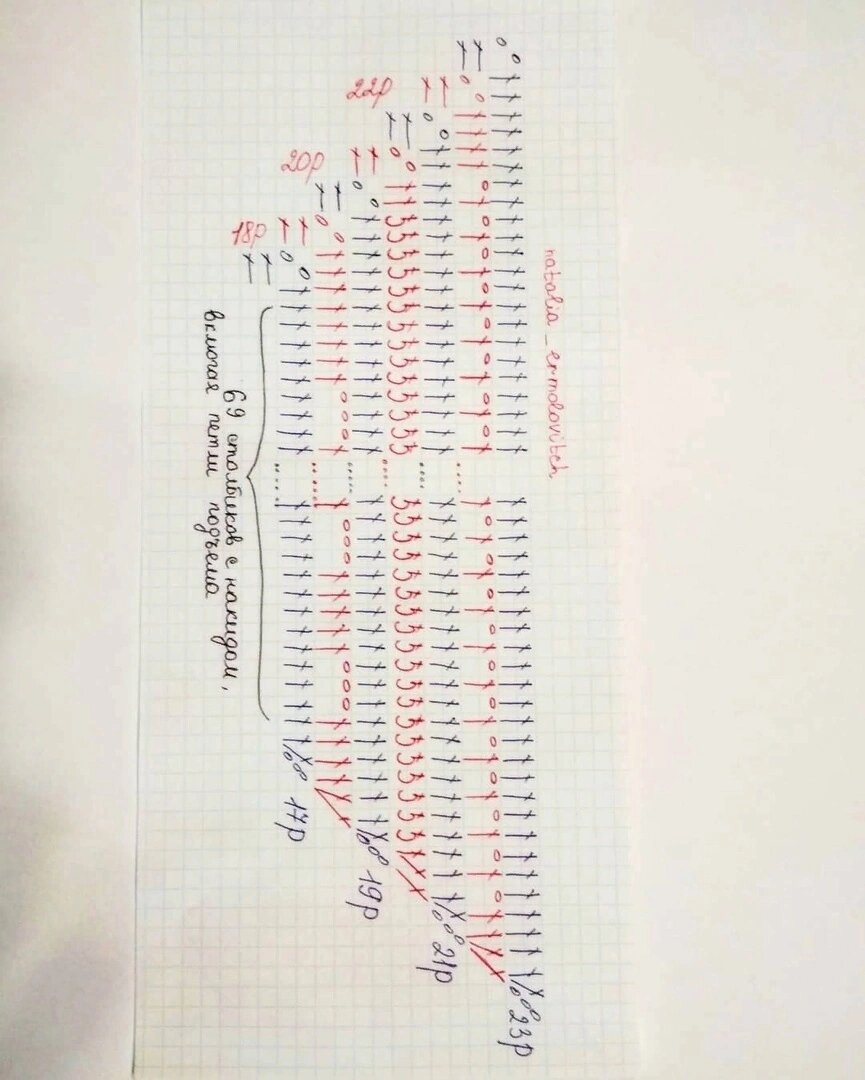 natalia_ermolovitch
22р
20р
18р
69 столбиков с накидом,
включая петли подъема
17р
19р
21р
23р